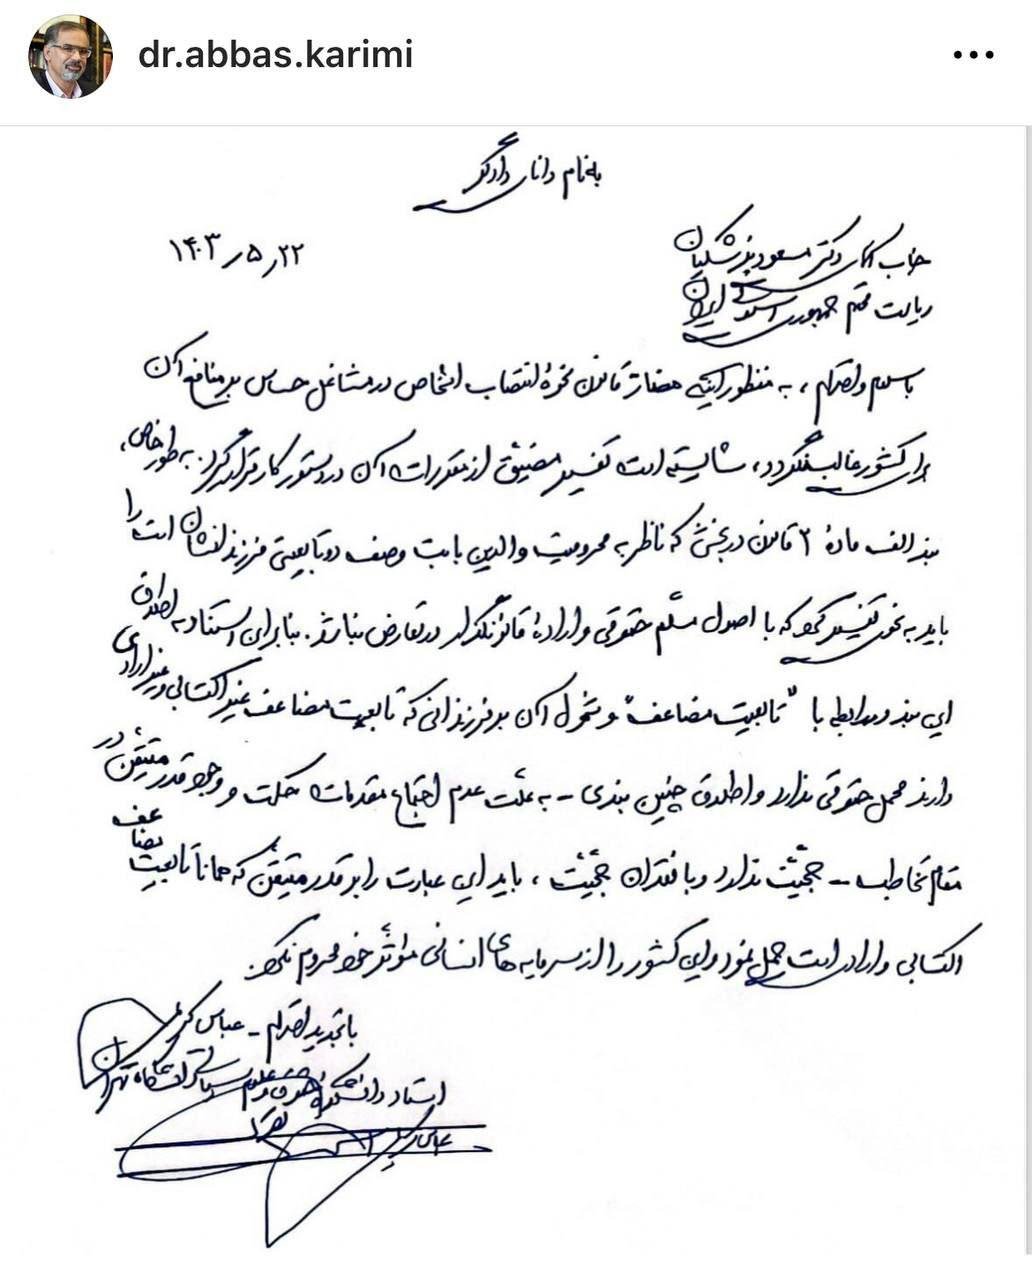 dr.abbas.karimi
به‌نام دانای دادگر
جناب آقای دکتر مسعود پزشکیان
۱۴۰۳٫۵٫۲۲
ریاست محترم جمهوری اسلامی ایران
با سلام و احترام، به منظور اینکه مضار قانون نحوهٔ انتصاب اشخاص در مشاغل حساس بر منافع آن
برای کشور غالب نگردد، شایسته است تفسیر مضیّق از مقررات آن در دستور کار قرار گیرد. به طور خاص،
بند الف مادهٔ ۲ قانون در بخشی که ناظر به محرومیت والدین بابت وصف دوتابعیتی فرزندانشان است را
باید به نحوی تفسیر کرد که با اصول مسلّم حقوقی و ارادهٔ قانونگذار در تعارض نباشد. بنابراین استناد به اطلاق
این بند در رابطه با "تابعیت مضاعف" و شمول آن بر فرزندانی که تابعیت مضاعف غیر اکتسابی و غیر ارادی
دارند محمل حقوقی ندارد و اطلاق چنین بندی - به علّت عدم اجتماع مقدمات حکمت و وجود قدر متیقّن در
مقام تخاطب - حجیّت ندارد و با فقدان حجیّت، باید این عبارت را بر قدر متیقّن که همانا تابعیت مضاعف
اکتسابی و ارادی است حمل نمود و این کشور را از سرمایه‌های انسانی مؤثّر خود محروم نکرد.
با تجدید احترام - عباس کریمی
استاد دانشکده حقوق و علوم سیاسی دانشگاه تهران